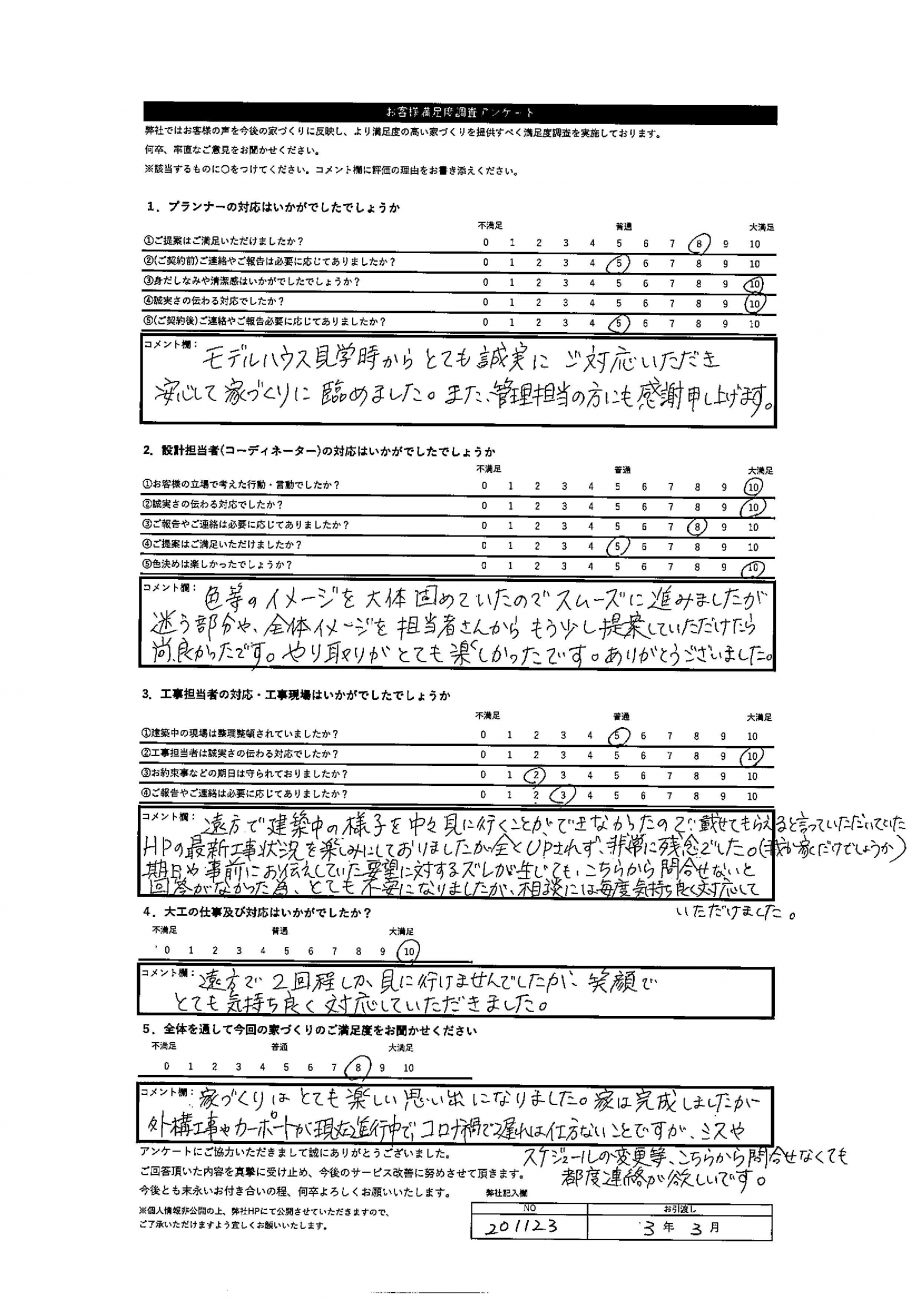 お客様満足度調査アンケート
弊社ではお客様の声を今後の家づくりに反映し、より満足度の高い家づくりを提供すべく満足度調査を実施しております。
何卒、率直なご意見をお聞かせください。
※該当するものに〇をつけてください。コメント欄に評価の理由をお書き添えください。
1．プランナーの対応はいかがでしたでしょうか
不満足 普通 大満足
①ご提案はご満足いただけましたか？ 0 1 2 3 4 5 6 7 8 9 10
②(ご契約前)ご連絡やご報告は必要に応じてありましたか？ 0 1 2 3 4 5 6 7 8 9 10
③身だしなみや清潔感はいかがでしたでしょうか？ 0 1 2 3 4 5 6 7 8 9 10
④誠実さの伝わる対応でしたか？ 0 1 2 3 4 5 6 7 8 9 10
⑤(ご契約後)ご連絡やご報告必要に応じてありましたか？ 0 1 2 3 4 5 6 7 8 9 10
コメント欄：
モデルハウス見学時からとても誠実にご対応いただき
安心して家づくりに臨めました。また、管理担当の方にも感謝申し上げます。
2．設計担当者(コーディネーター)の対応はいかがでしたでしょうか
不満足 普通 大満足
①お客様の立場で考えた行動・言動でしたか？ 0 1 2 3 4 5 6 7 8 9 10
②誠実さの伝わる対応でしたか？ 0 1 2 3 4 5 6 7 8 9 10
③ご報告やご連絡は必要に応じてありましたか？ 0 1 2 3 4 5 6 7 8 9 10
④ご提案はご満足いただけましたか？ 0 1 2 3 4 5 6 7 8 9 10
⑤色決めは楽しかったでしょうか？ 0 1 2 3 4 5 6 7 8 9 10
コメント欄：
色等のイメージを大体固めていたのでスムーズに進みましたが
迷う部分や、全体イメージを担当者さんからもう少し提案していただけたら
尚良かったです。やり取りがとても楽しかったです。ありがとうございました。
3．工事担当者の対応・工事現場はいかがでしたでしょうか
不満足 普通 大満足
①建築中の現場は整理整頓されていましたか？ 0 1 2 3 4 5 6 7 8 9 10
②工事担当者は誠実さの伝わる対応でしたか？ 0 1 2 3 4 5 6 7 8 9 10
③お約束事などの期日は守られておりましたか？ 0 1 2 3 4 5 6 7 8 9 10
④ご報告やご連絡は必要に応じてありましたか？ 0 1 2 3 4 5 6 7 8 9 10
コメント欄：
遠方で建築中の様子を中々見に行くことができなかったので載せてもらえると言っていただいていた
HPの最新工事状況を楽しみにしておりましたが全くUPされず、非常に残念でした。(我が家だけでしょうか)
期日や事前にお伝えしていた要望に対するズレが生じても、こちらから問合せないと
回答がなかった為、とても不安になりましたが、相談には毎度気持ち良く対応して
いただけました。
4．大工の仕事及び対応はいかがでしたか？
不満足 普通 大満足
0 1 2 3 4 5 6 7 8 9 10
コメント欄：
遠方で2回程しか見に行けませんでしたが、笑顔で
とても気持ち良く対応していただきました。
5．全体を通して今回の家づくりのご満足度をお聞かせください
不満足 普通 大満足
0 1 2 3 4 5 6 7 8 9 10
コメント欄：
家づくりはとても楽しい思い出になりました。家は完成しましたが
外構工事やカーポートが現在進行中で、コロナ禍で遅れは仕方ないことですが、ミスや
スケジュールの変更等、こちらから問合せなくても
都度連絡が欲しいです。
アンケートにご協力いただきまして誠にありがとうございました。
ご回答頂いた内容を真摯に受け止め、今後のサービス改善に努めさせて頂きます。
今後とも末永いお付き合いの程、何卒よろしくお願いいたします。
※個人情報非公開の上、弊社HPにて公開させていただきますので、
ご了承いただけますよう宜しくお願いいたします。
弊社記入欄
NO お引渡し
201123 3年 3月